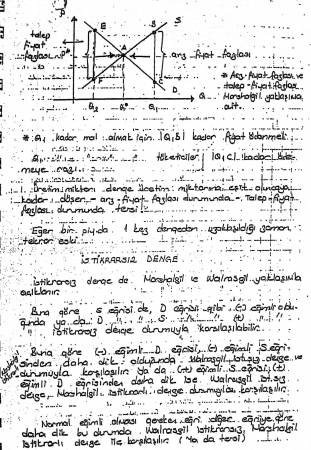 P
E
S
S
talep
fiyat
fazlası
P*
A
arz fiyat fazlası
F
C
D
Q2 Q* Q1
Q
* Arz-fiyat fazlası ve
talep-fiyat fazlası
Marshalgil yaklaşıma
ait.
*: Q1 kadar mal almak için |Q1S| kadar fiyat ödenmeli
Q1 tüketiciler |Q1C| kadar öde-
meye razı.
Üretim miktarı denge üretim miktarına eşit oluncaya
kadar düşer - arz-fiyat fazlası durumunda - Talep-fiyat
fazlası durumunda tersi
Eğer bir piy.da 1 kez dengeden uzaklaşıldığı zaman
tekrar eski
İSTİKRARSIZ DENGE
İstikrarsız denge de Marshalgil ve Walrasgil yaklaşımla
açıklanır.
Buna göre S eğrisi de, D eğrisi gibi (-) eğimli oldu-
ğunda ya da D
istikrarsız denge durumuyla karşılaşılabilir.
Buna göre (-) eğimli D eğrisi, (-) eğimli S eğri-
sinden daha dik olduğunda Walrasgil ist.sız denge
durumuyla karşılaşılır. Ya da (+) eğimli S eğrisi, (+)
eğimli D eğrisinden daha dik ise Walrasgil ist.sız
denge, Marshalgil istikrarlı denge durumuyla karşılaşılır.
Normal eğimli olması gereken eğri diğer eğriye göre
daha dik bu durumda Walrasgil istikrarsız, Marshalgil
istikrarlı denge ile karşılaşılır (Ya da tersi)